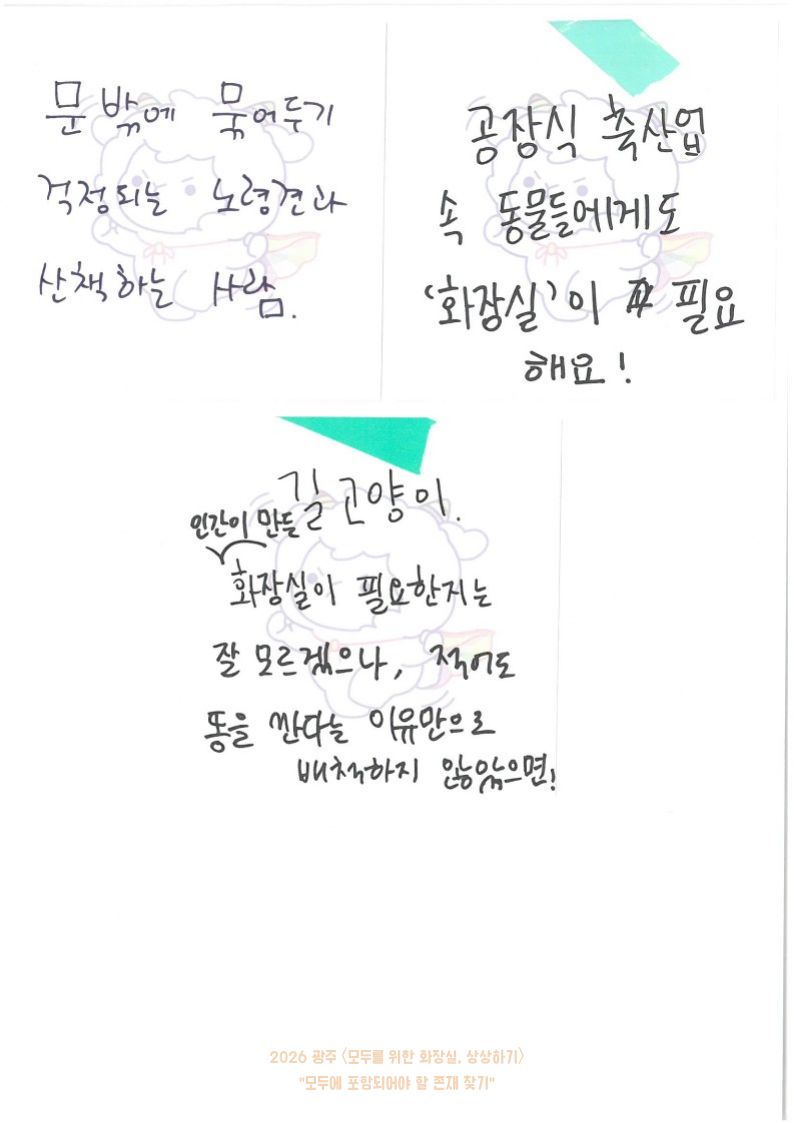 문 밖에 묶어두기
걱정되는 노령견과
산책하는 사람.
공장식 축산업
속 동물들에게도
'화장실'이 필요
해요!
길고양이.
인간이 만든
화장실이 필요한지는
잘 모르겠으나, 적어도
똥을 싼다는 이유만으로
배척하지 않았으면!
2026 광주 <모두를 위한 화장실, 상상하기>
"모두에 포함되어야 할 존재 찾기"